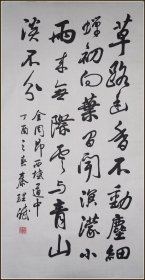 草路幽香不動塵細
蟬初向葉間聞溟濛小
雨來無際雲与青山
淡不分
金周昂西城道中
丁酉之春秦理斌